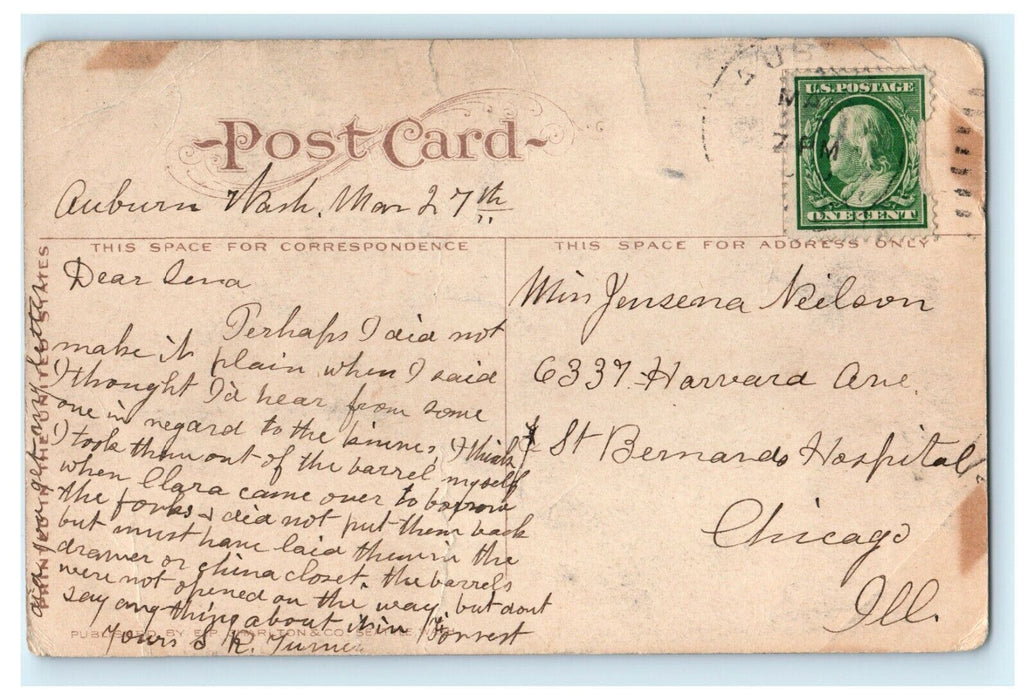 Post Card
U.S. POSTAGE
ONE CENT
2 PM
Auburn Wash. Mar 27th
THIS SPACE FOR CORRESPONDENCE
THIS SPACE FOR ADDRESS ONLY
Dear Sena
Perhaps I did not
make it plain when I said
I thought I'd hear from some
one in regard to the knives, I think
I took them out of the barrel myself
when Clara came over to borrow
the forks & did not put them back
but must have laid them in the
drawer or china closet. the barrels
were not opened on the way but dont
say any thing about it in Forrest
Yours S R. Turner
did you get my letter
Miss Jensena Neilson
6337 Harvard Ave
St Bernards Hospital
Chicago
Ill.
PUBLISHED BY E.P. CHARLTON & CO. SEATTLE